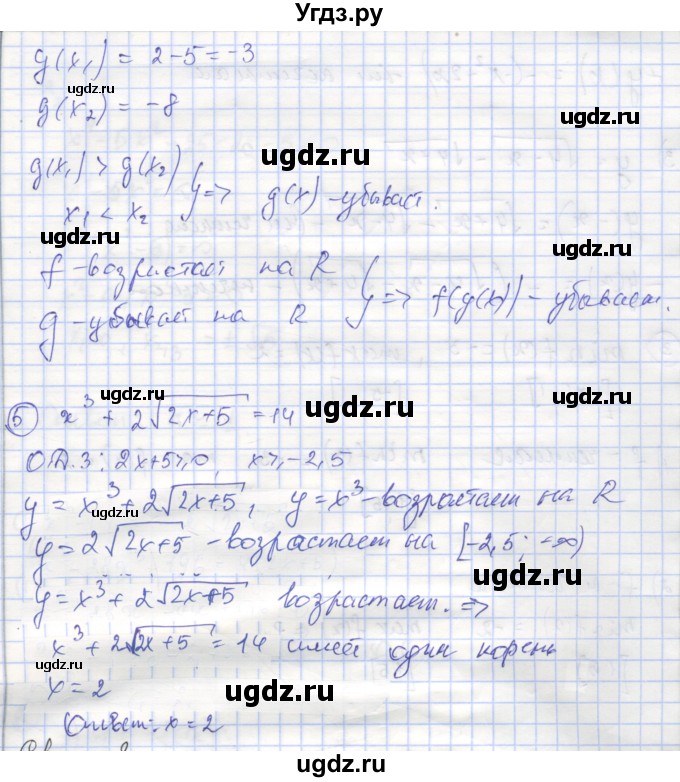 Угдз.ру
g(x₁) = 2 - 5 = -3
ugdz.ru
g(x₂) = -8
ugdz.ru
g(x₁) > g(x₂)
x₁ < x₂ } => g(x) - убывает.
ugdz.ru
ugdz.ru
ugdz.ru
f - возрастает на R
g - убывает на R } => f(g(x)) - убывает.
ugdz.ru
ugdz.ru
ugdz.ru
5) x³ + 2√(2x+5) = 14
ugdz.ru
ugdz.ru
О.Д.З: 2x+5⩾0, x⩾-2,5
y = x³ + 2√(2x+5), y = x³ - возрастает на R
ugdz.ru
y = 2√(2x+5) - возрастает на [-2,5; +∞)
ugdz.ru
y = x³ + 2√(2x+5) возрастает. =>
x³ + 2√(2x+5) = 14 имеет один корень
ugdz.ru
x = 2
ugdz.ru
Ответ: x = 2
ugdz.ru
ugdz.ru